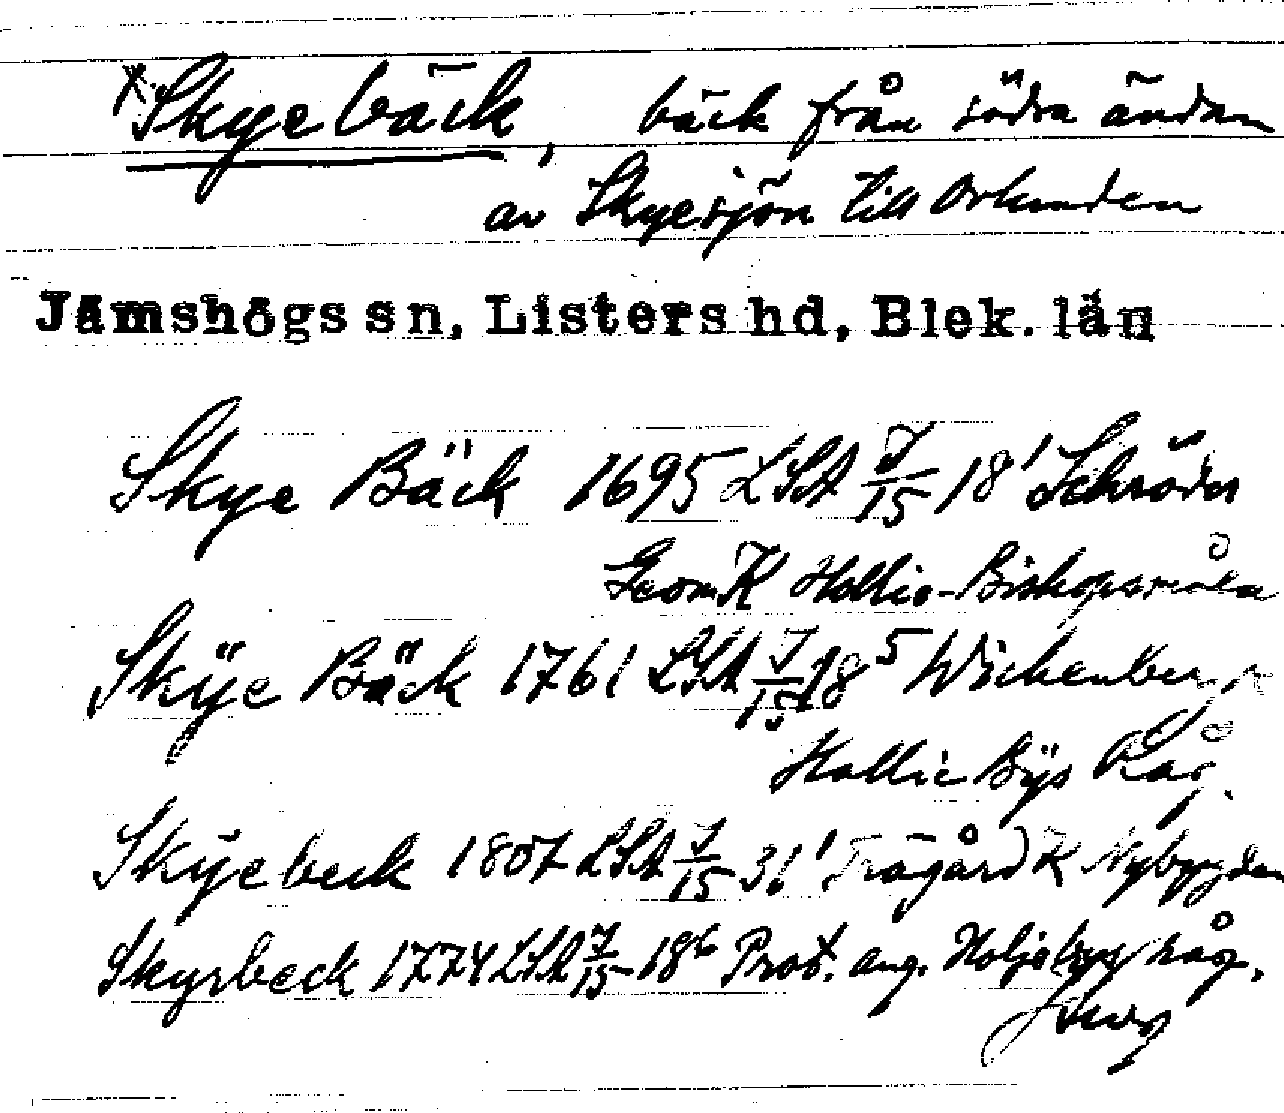 × Skyebäck, bäck från södra ändan
av Skyesjön till Orlunden
Jämshögs sn, Listers hd, Blek. län
Skye Bäck 1695 LSA J/15-18¹ Schröder
Geom K Hollie-Biskopsmåla
Skÿe Bäck 1761 LSA J/15 18⁵ Wichenberg
Hollie Bÿs Råg.
Skÿebeck 1807 LSA J/15 31¹ Trägård K Nybygden
Skyrbeck 1774 LSA J/15-18⁶ Prot. ang. Holjeby råg.